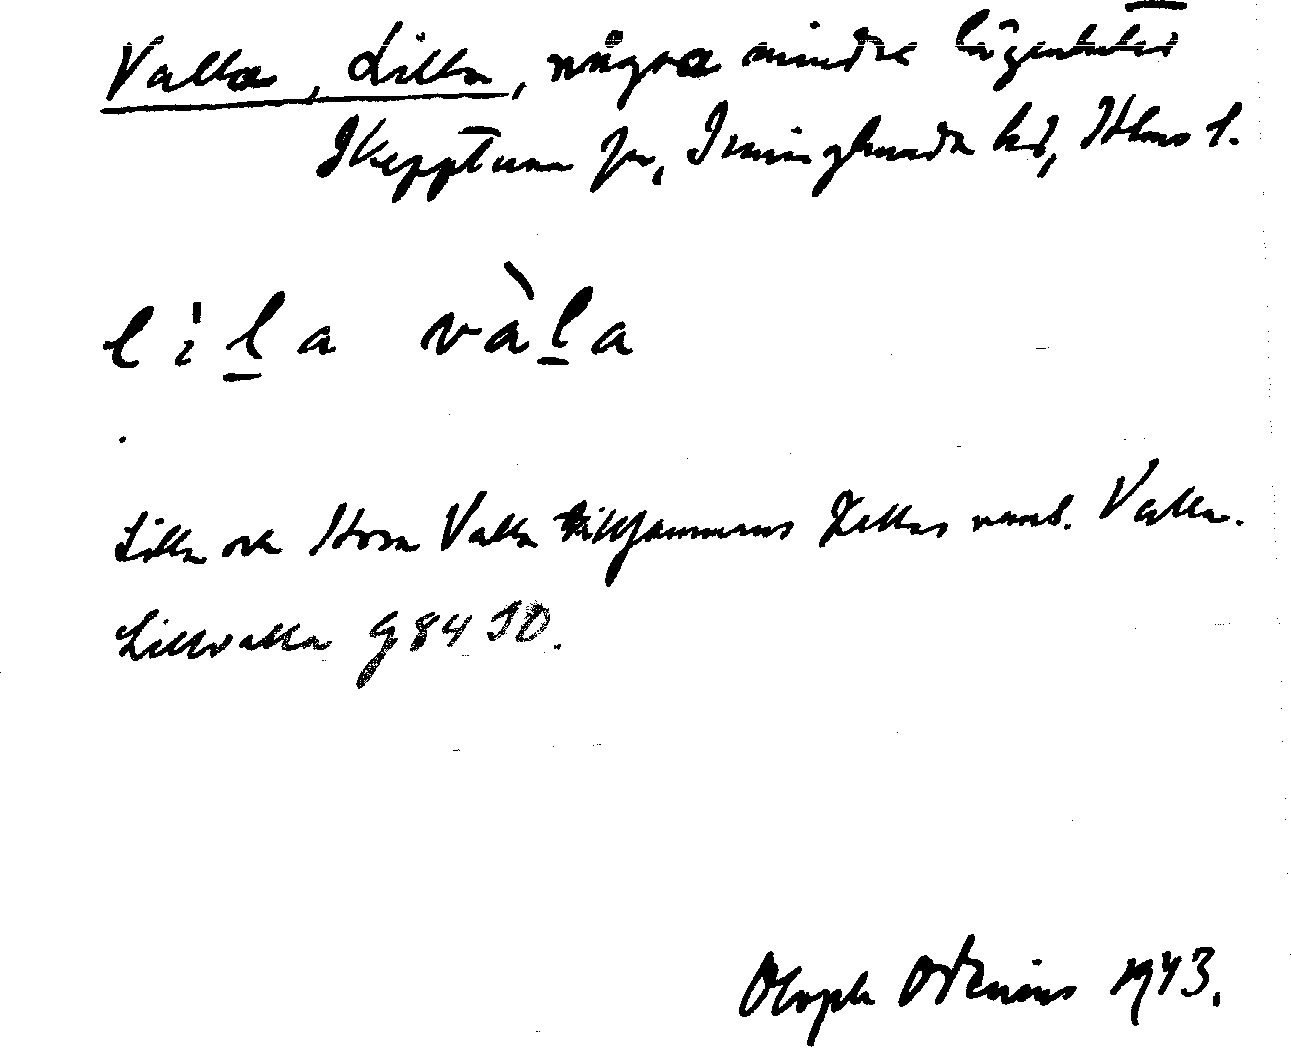 Valla, Lilla, några mindre lägenheter
Skepptuna sn, Seminghundra hd, Sthms l.
li̍l̲a vàl̲a
Lilla och Stora Valla tillsammans kallas vanl. Valla.
Lillvalla G 84 SO.
Oloph Odenius 1943.